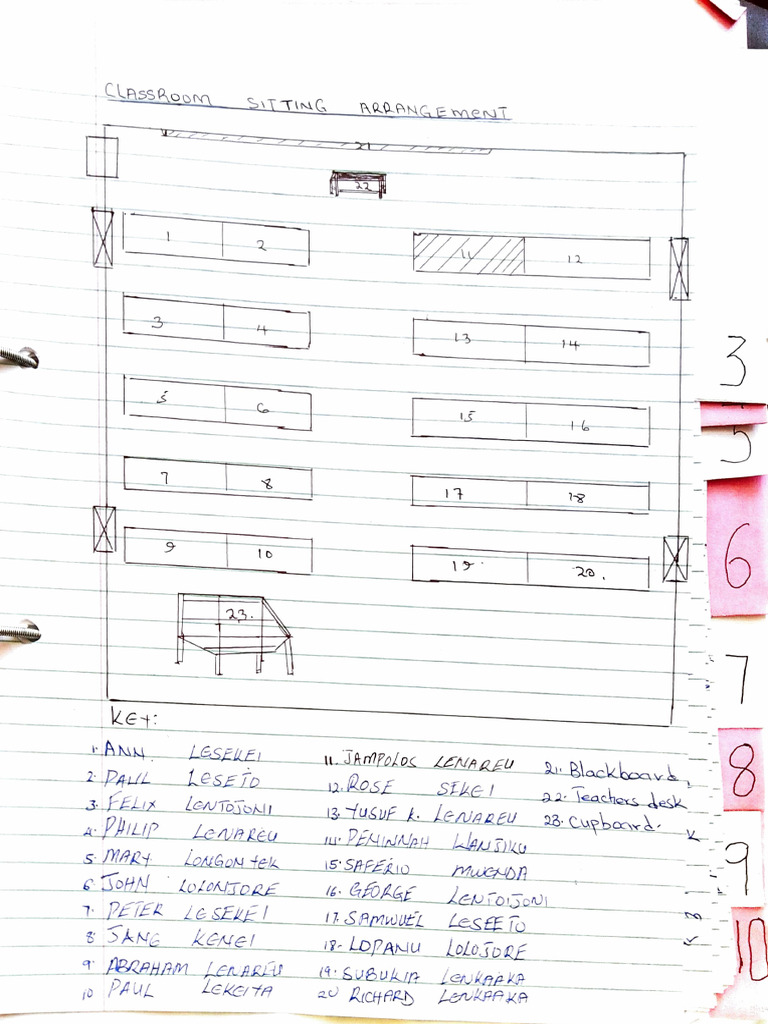 CLASSROOM SITTING ARRANGEMENT
21
22
1 2 11 12
3 4 13 14
5 6 15 16
7 8 17 18
9 10 19 20.
23.
KEY:
1. ANN LESEKEI
2. PAUL LESETO
3. FELIX LENTOJONI
4. PHILIP LENAREU
5 MARY LONGONTEK
6. JOHN LOLONJORE
7. PETER LESEKEI
8 JANG KENEI
9. ABRAHAM LENAREU
10 PAUL LEKEITA
11. JAMPOLOS LENAREU
12. ROSE SEKEI
13. YUSUF K. LENAREU
14. PENINNAH WANJIKU
15. SAFERIO MWENDA
16. GEORGE LENTOIJONI
17. SAMWUEL LESEETO
18. LOPANU LOLOJORE
19. SUBUKIA LENKAAKA
20 RICHARD LENKAAKA
21. Blackboard,
22. Teachers desk
23. Cupboard.
3
5
6
7
8
9
10